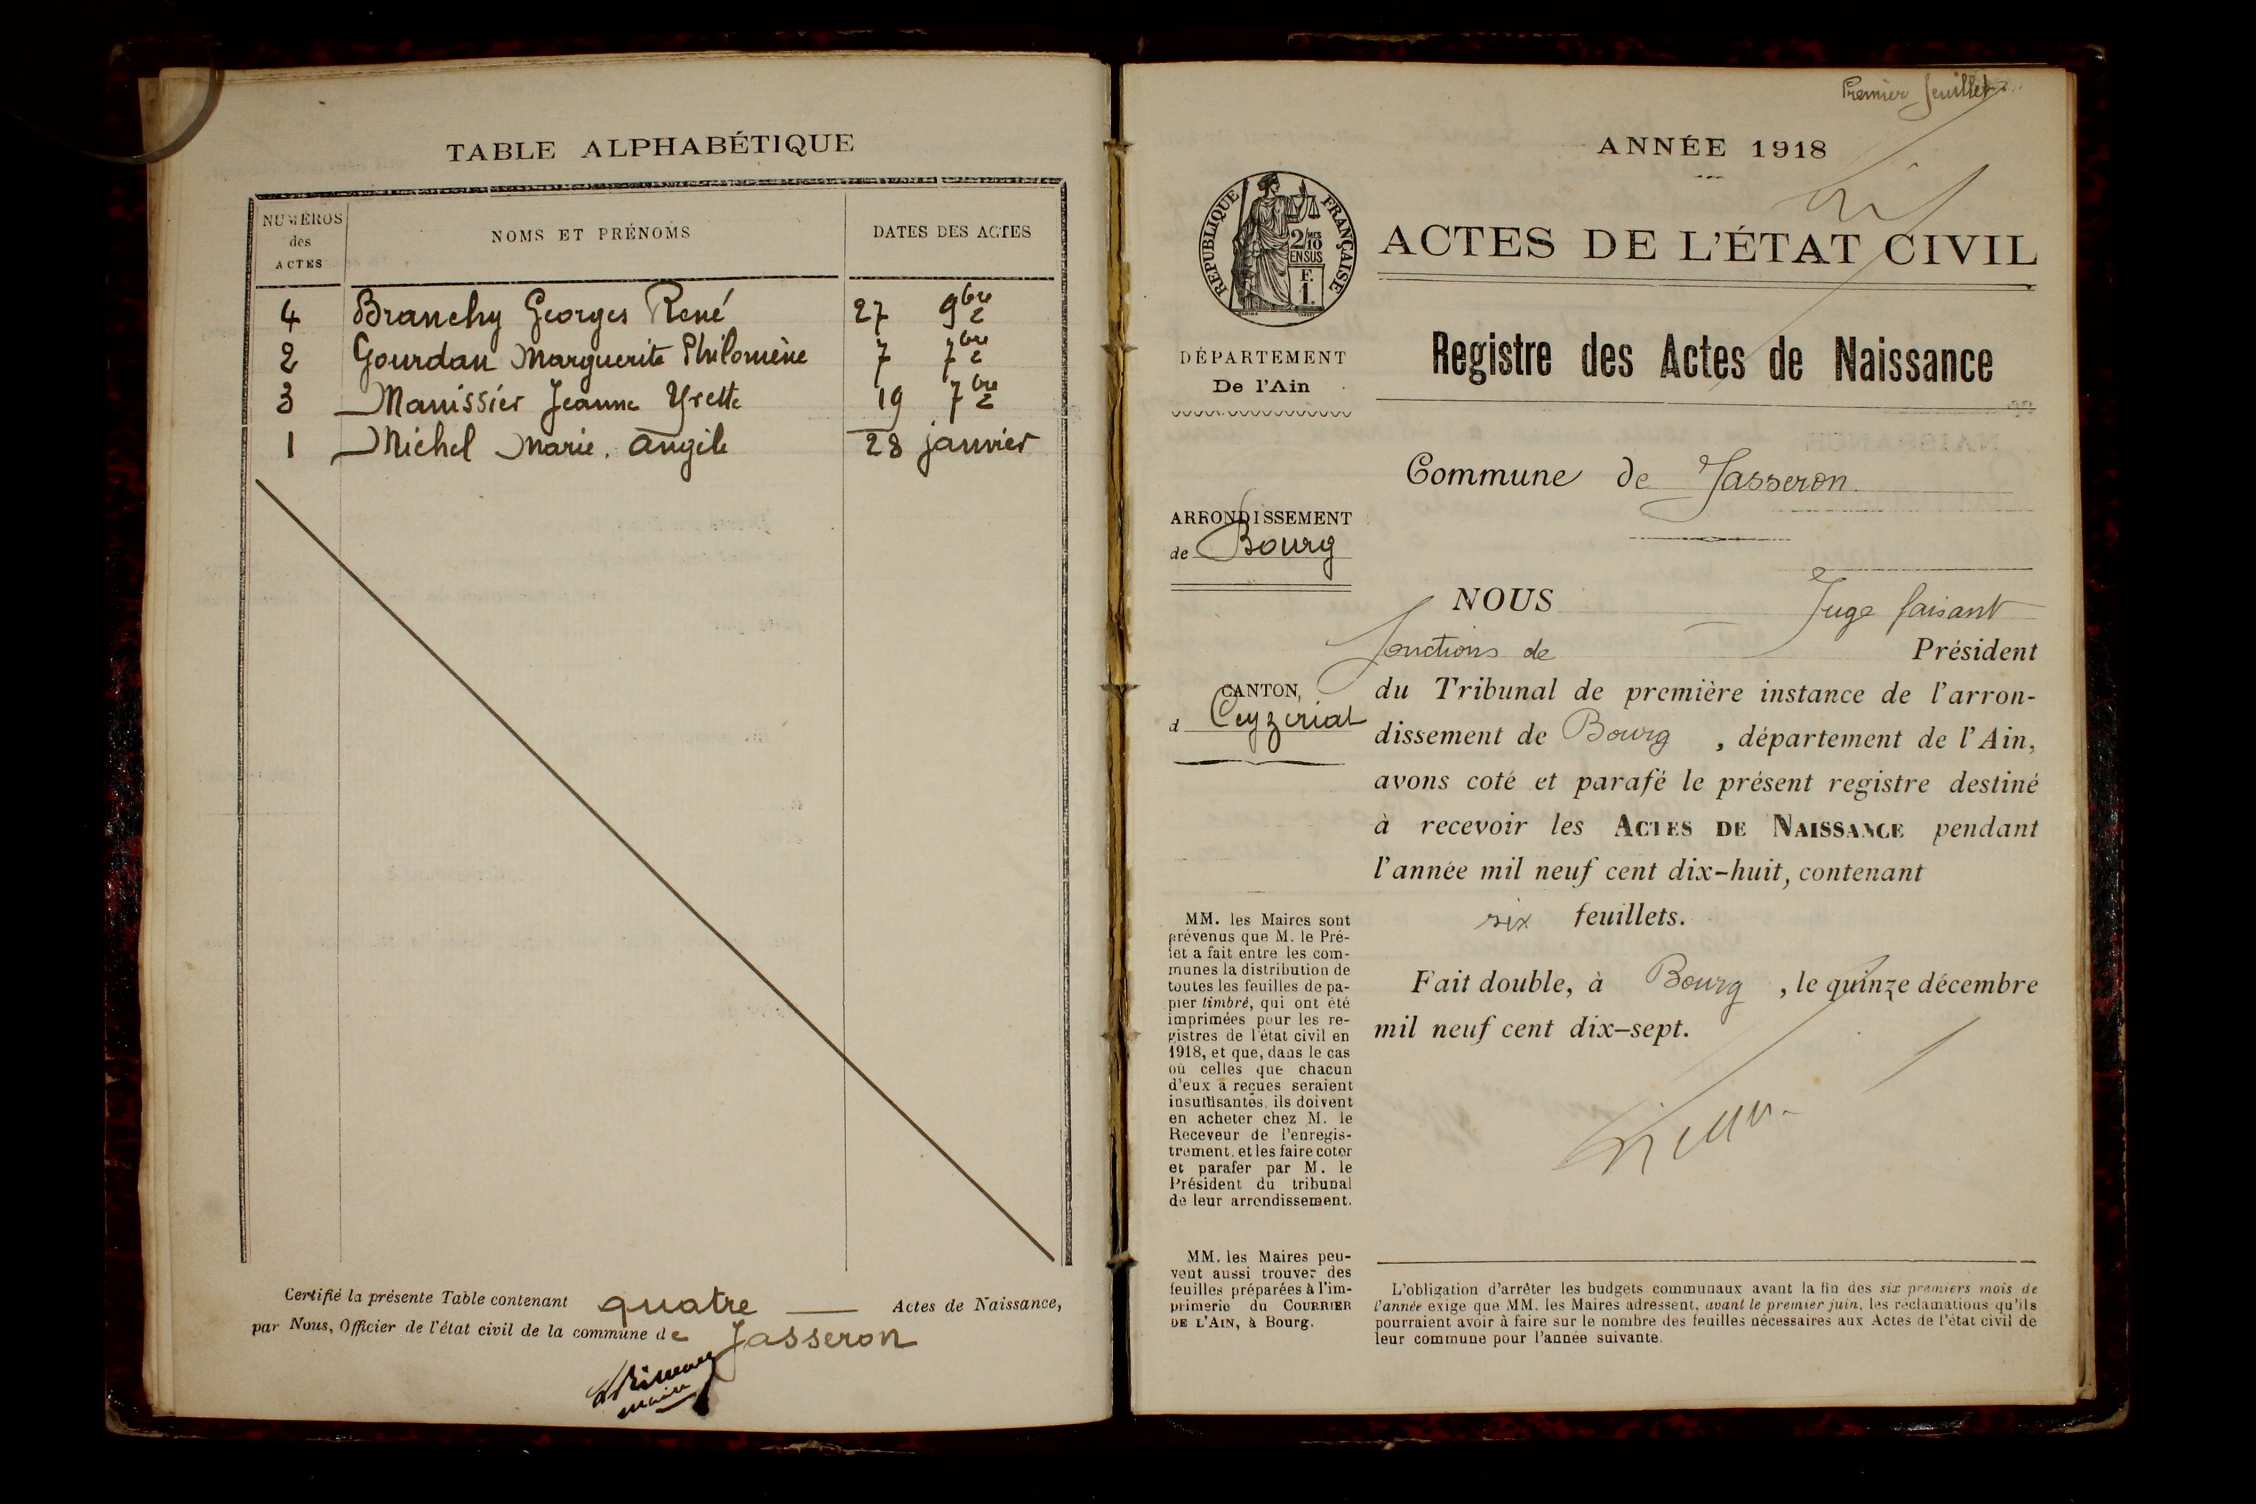 TABLE ALPHABÉTIQUE
NUMÉROS
des
ACTES
NOMS ET PRÉNOMS
DATES DES ACTES
4 Branchy Georges René 27 9bre
2 Gourdan Marguerite Philomène 7 7bre
3 Manissier Jeanne Yvette 19 7bre
1 Michel Marie. Angèle 28 janvier
Certifié la présente Table contenant quatre — Actes de Naissance,
par Nous, Officier de l'état civil de la commune de Jasseron
maire
Premier feuillet
ANNÉE 1918
RÉPUBLIQUE FRANÇAISE
2/10 EN SUS
F. 1.
ACTES DE L'ÉTAT CIVIL
Registre des Actes de Naissance
DÉPARTEMENT
De l'Ain
Commune de Jasseron
ARRONDISSEMENT
de Bourg
NOUS Juge faisant
fonctions de Président
CANTON,
d Ceyzeriat
du Tribunal de première instance de l'arron-
dissement de Bourg, département de l'Ain,
avons coté et parafé le présent registre destiné
à recevoir les ACTES DE NAISSANCE pendant
l'année mil neuf cent dix-huit, contenant
six feuillets.
Fait double, à Bourg, le quinze décembre
mil neuf cent dix-sept.
MM. les Maires sont
prévenus que M. le Pré-
fet a fait entre les com-
munes la distribution de
toutes les feuilles de pa-
pier timbré, qui ont été
imprimées pour les re-
gistres de l'état civil en
1918, et que, dans le cas
où celles que chacun
d'eux a reçues seraient
insuffisantes, ils doivent
en acheter chez M. le
Receveur de l'enregis-
trement, et les faire coter
et parafer par M. le
Président du tribunal
de leur arrondissement.
MM. les Maires peu-
vent aussi trouver des
feuilles préparées à l'im-
primerie du COURRIER
DE L'AIN, à Bourg.
L'obligation d'arrêter les budgets communaux avant la fin des six premiers mois de
l'année exige que MM. les Maires adressent, avant le premier juin, les réclamations qu'ils
pourraient avoir à faire sur le nombre des feuilles nécessaires aux Actes de l'état civil de
leur commune pour l'année suivante.